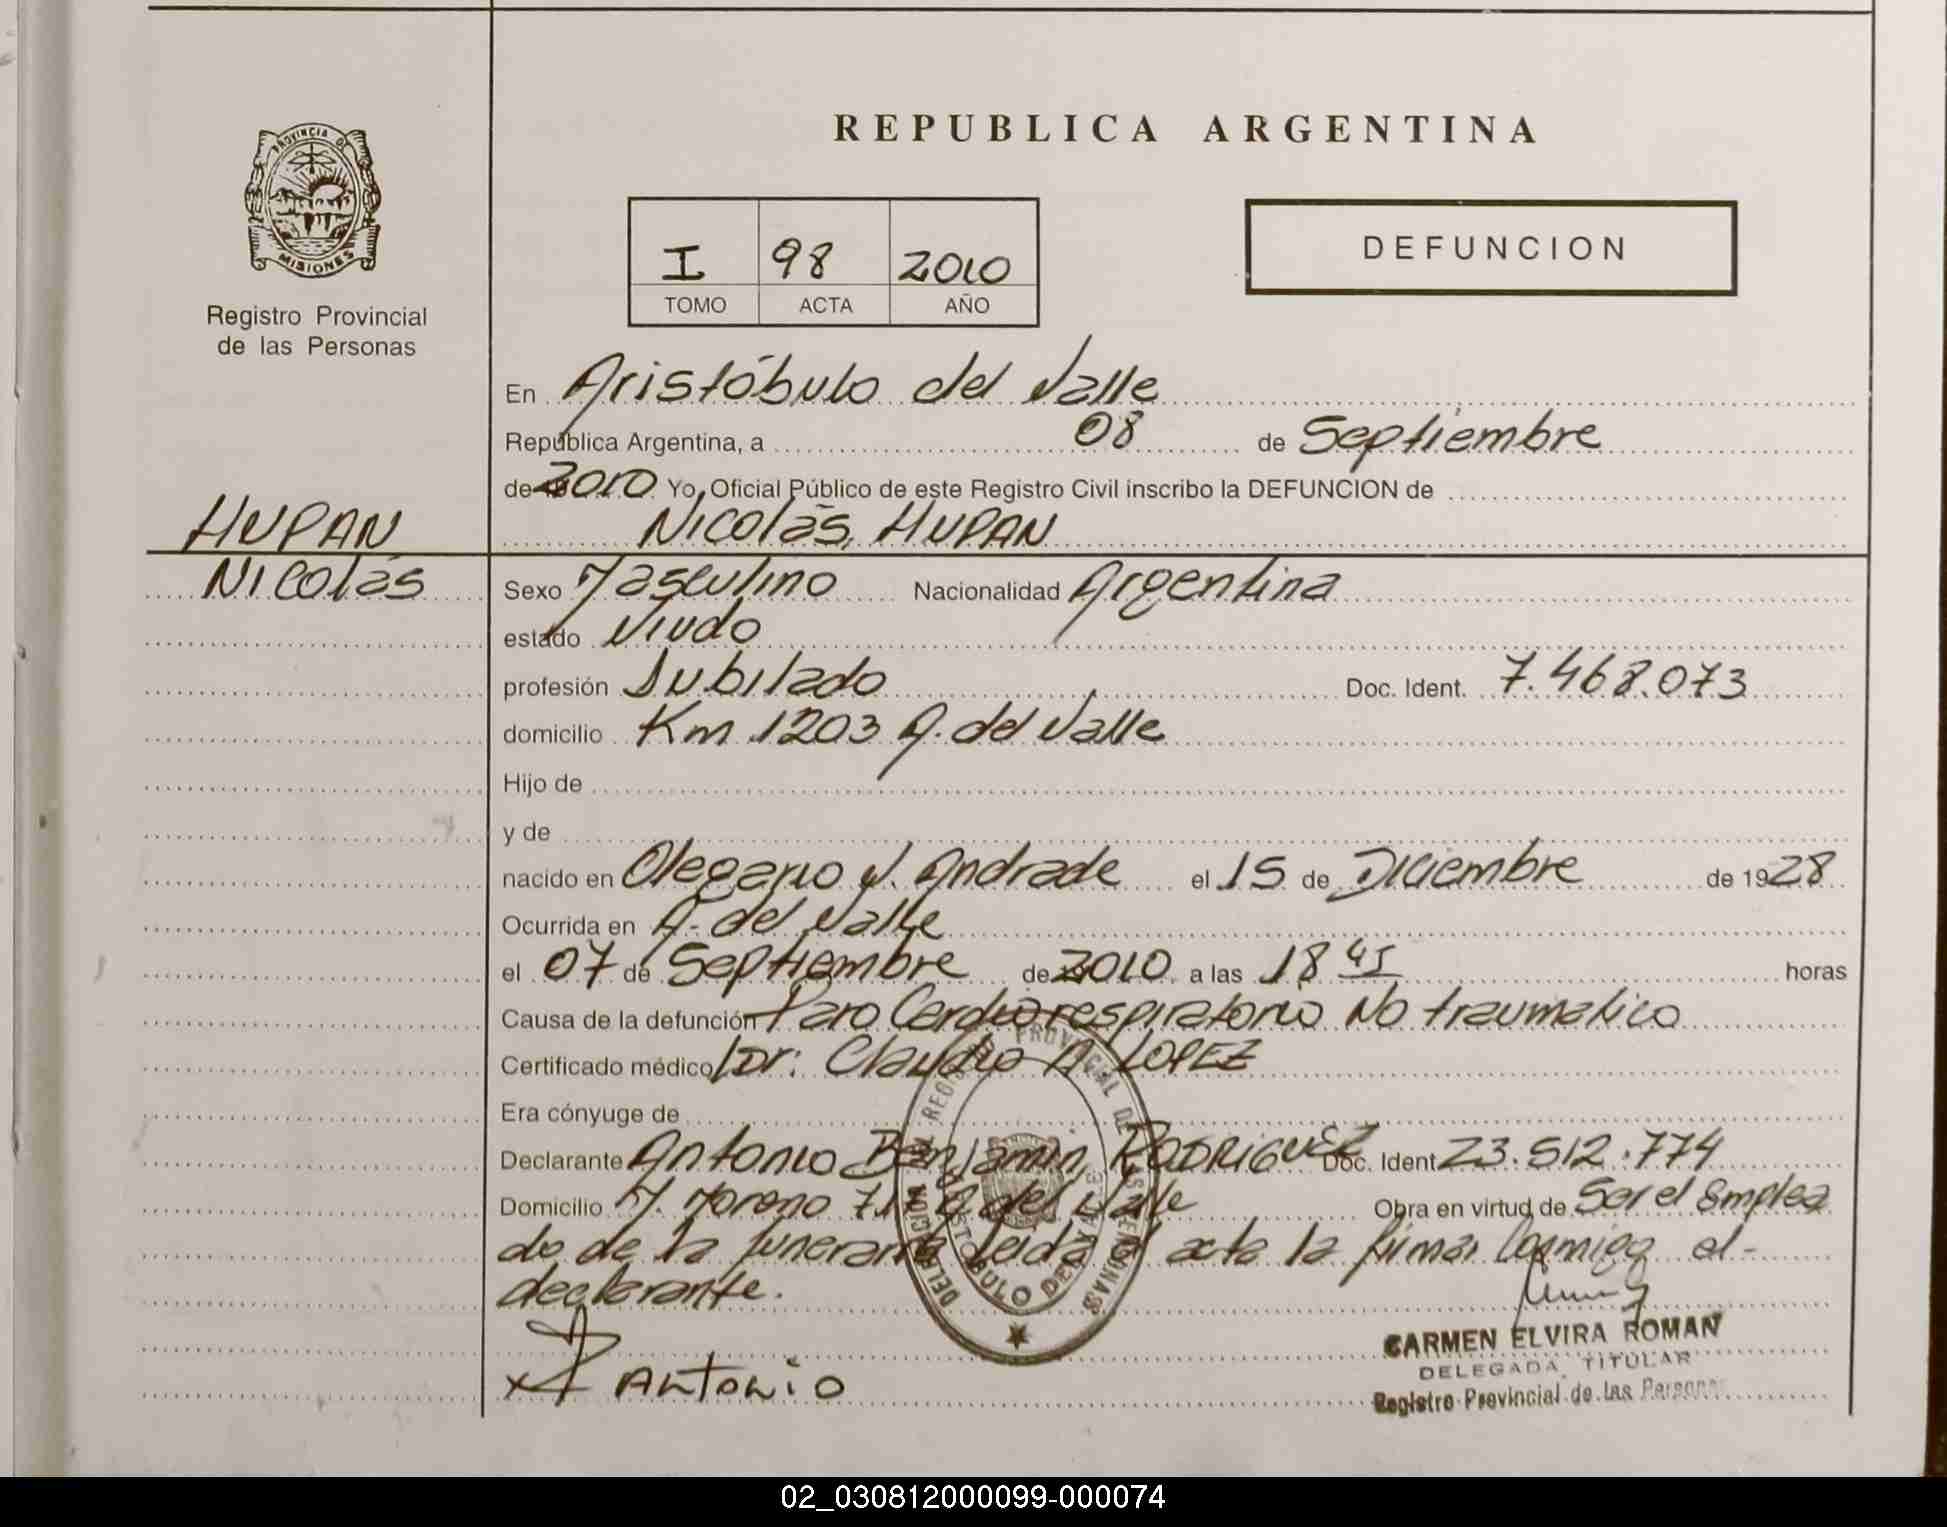 REPUBLICA ARGENTINA
PROVINCIA DE
MISIONES
Registro Provincial
de las Personas
I 98 2010
TOMO ACTA AÑO
DEFUNCION
En Aristóbulo del Valle
República Argentina, a 08 de Septiembre
de 2010 Yo, Oficial Público de este Registro Civil inscribo la DEFUNCION de
HUPAN
Nicolás, HUPAN
Nicolás
Sexo Masculino Nacionalidad Argentina
estado Viudo
profesión Jubilado Doc. Ident. 7.468.073
domicilio Km 1203 A. del Valle
Hijo de
y de
nacido en Olegario V. Andrade el 15 de Diciembre de 1928
Ocurrida en A. del Valle
el 07 de Septiembre de 2010 a las 18 45 horas
Causa de la defunción Paro Cardiorespiratorio No traumatico
Certificado médico Dr: Claudio A. LOPEZ
Era cónyuge de
Declarante Antonio Benjamin, RODRIGUEZ Doc. Ident 23.512.774
Domicilio M. Moreno A. del Valle Obra en virtud de Ser el emplea
do de la funeraria leida el acta la firma Conmigo el-
declarante.
CARMEN ELVIRA ROMAN
DELEGADA TITULAR
Registro Provincial de las Personas
x Antonio
02_030812000099-000074